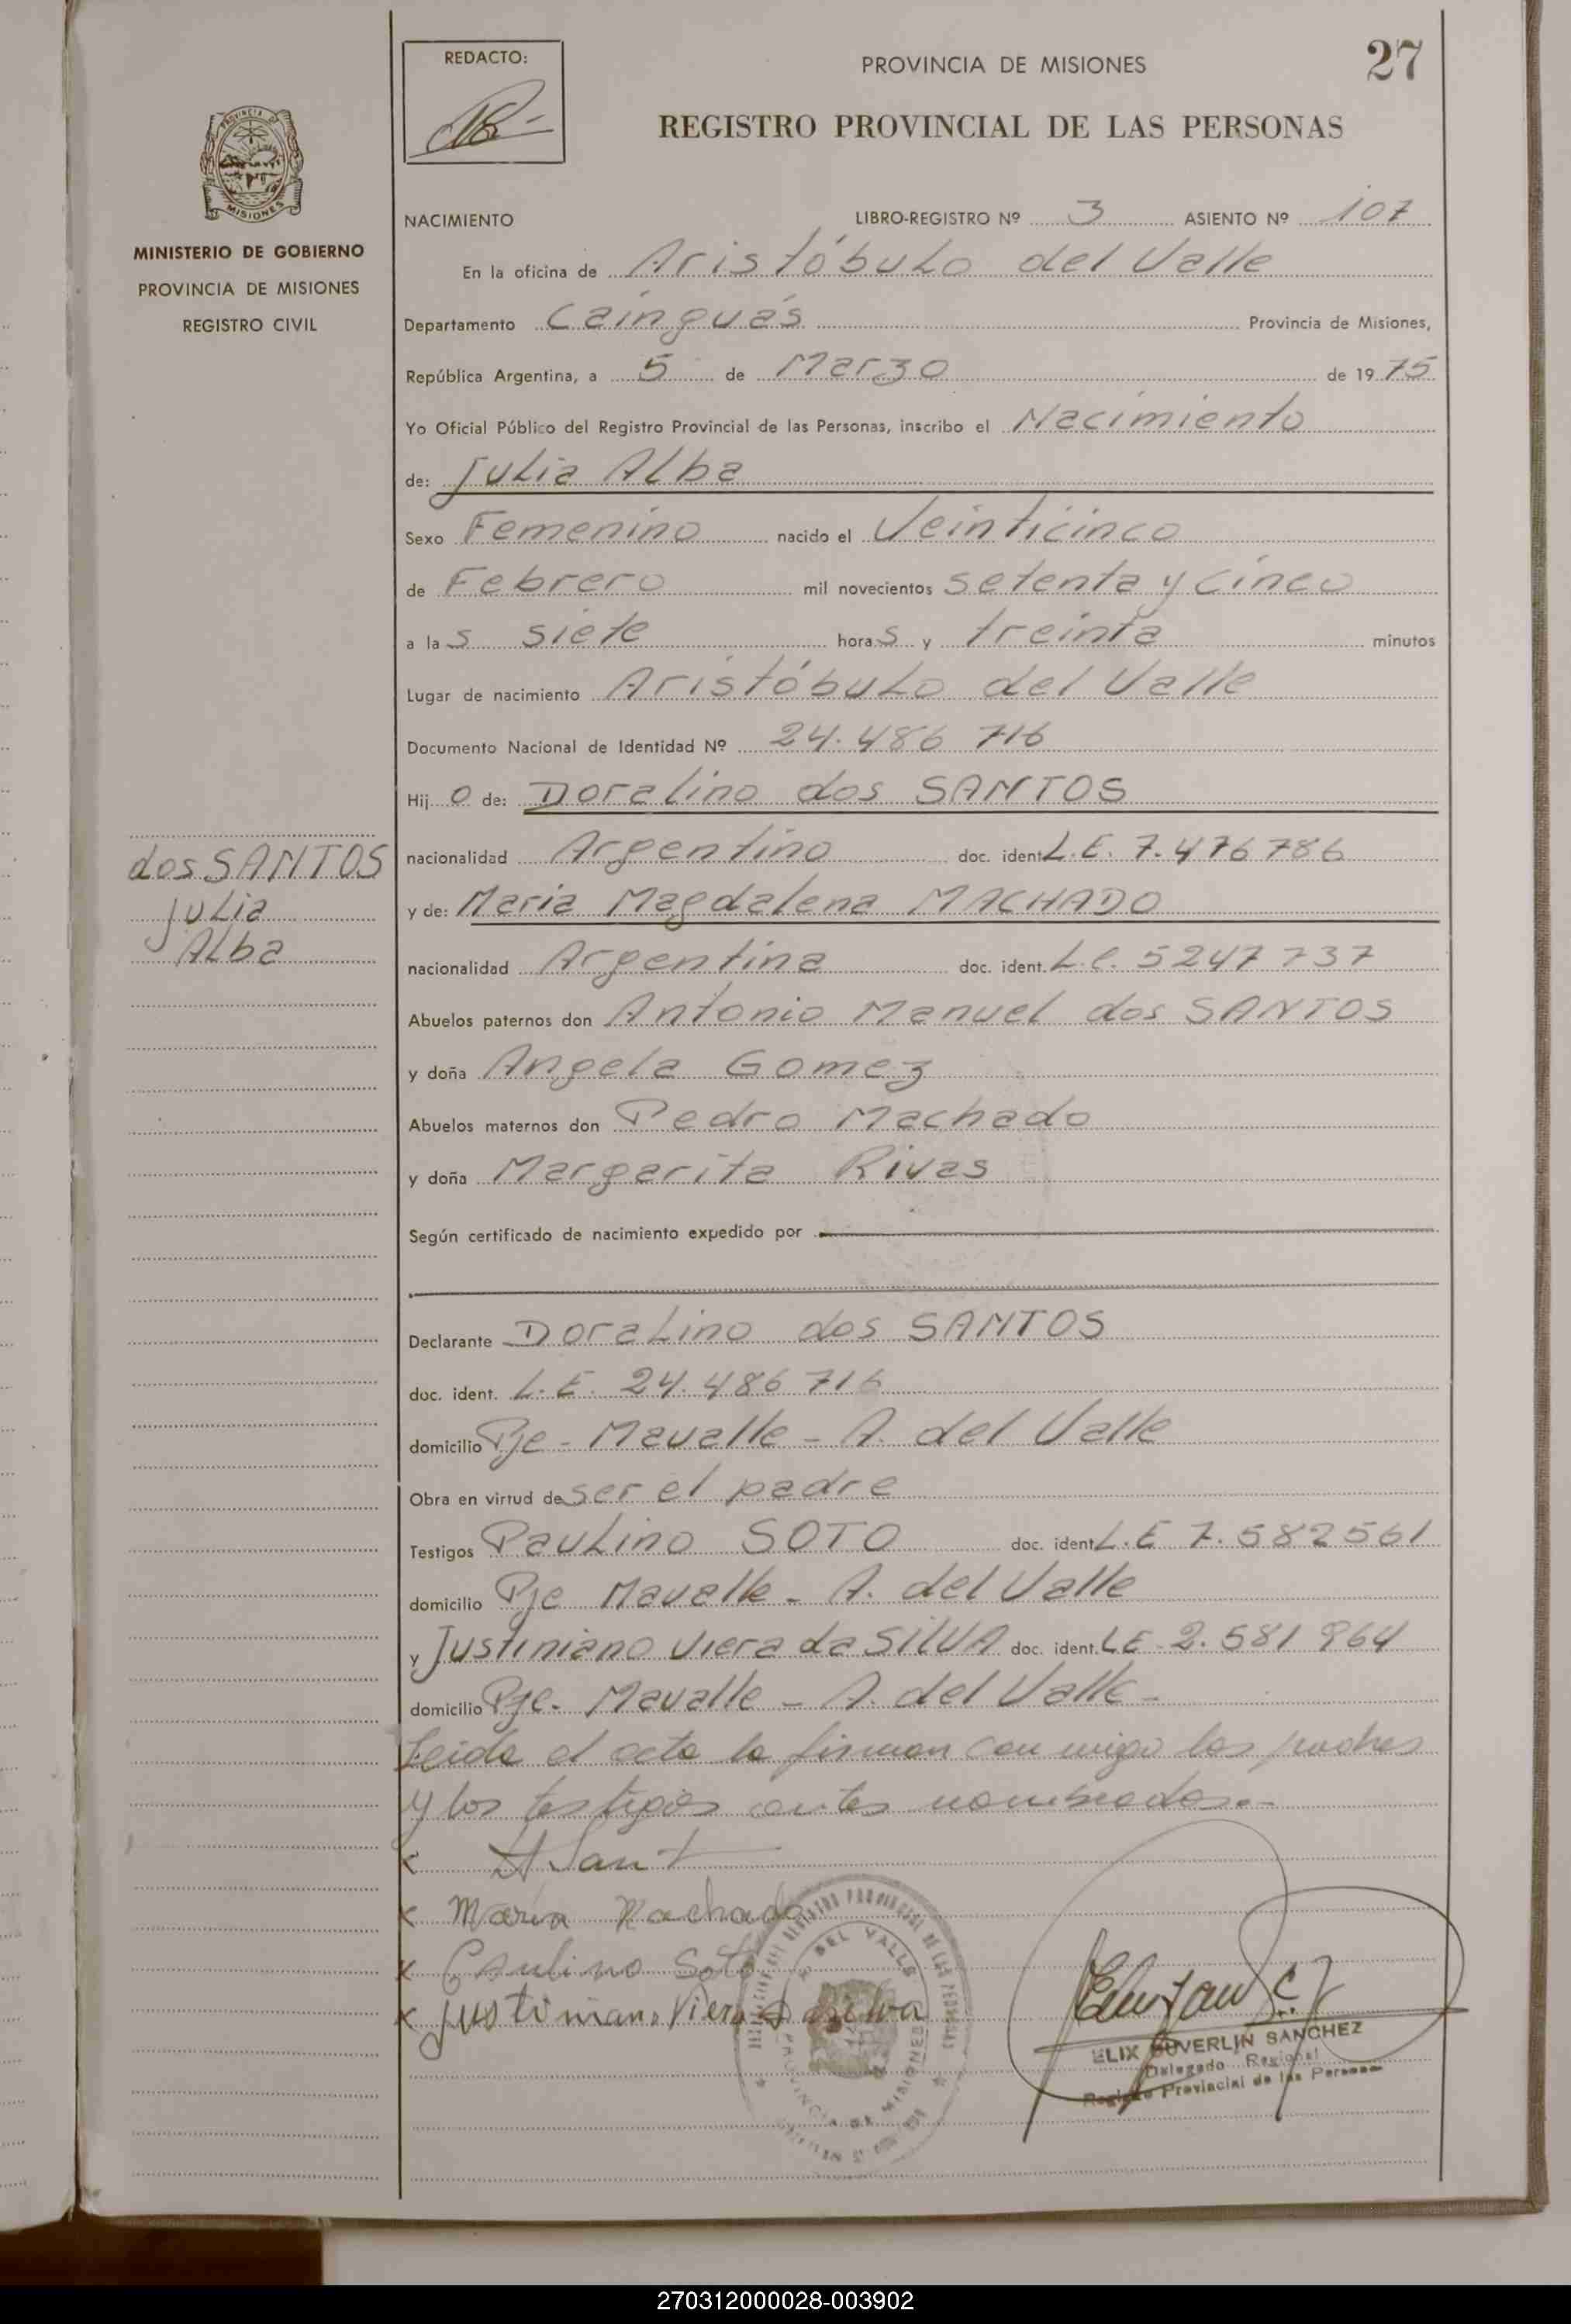 REDACTO:
PROVINCIA DE MISIONES
27
REGISTRO PROVINCIAL DE LAS PERSONAS
MISIONES
MINISTERIO DE GOBIERNO
PROVINCIA DE MISIONES
REGISTRO CIVIL
NACIMIENTO LIBRO-REGISTRO Nº 3 ASIENTO Nº 107
En la oficina de Aristóbulo del Valle
Departamento Cainguás Provincia de Misiones,
República Argentina, a 5 de Marzo de 1975
Yo Oficial Público del Registro Provincial de las Personas, inscribo el Nacimiento
de: Julia Alba
Sexo Femenino nacido el Veinticinco
de Febrero mil novecientos setenta y cinco
a las siete horas y treinta minutos
Lugar de nacimiento Aristóbulo del Valle
Documento Nacional de Identidad Nº 24.486 716
Hijo de: Doralino dos SANTOS
nacionalidad Argentino doc. ident. L.E. 7.476786
y de: Maria Magdalena MACHADO
nacionalidad Argentina doc. ident. L.C. 5247737
dos SANTOS
Julia
Alba
Abuelos paternos don Antonio Manuel dos SANTOS
y doña Angela Gomez
Abuelos maternos don Pedro Machado
y doña Margarita Rivas
Según certificado de nacimiento expedido por
Declarante Doralino dos SANTOS
doc. ident. L.E. 24.486 716
domicilio Pje - Mavalle - A. del Valle
Obra en virtud de ser el padre
Testigos Paulino SOTO doc. ident. L.E 7.582561
domicilio Pje Mavalle - A. del Valle
y Justiniano Viera da SILVA doc. ident. LE - 2.581 964
domicilio Pje. Mavalle - A. del Valle -
Leida el acta la firman conmigo los padres
y los testigos antes nombrados.-
x
x Maria Machado
x Paulino Soto
x Justiniano Viera Dasilva
DEL VALLE
PROVINCIA DE MISIONES
ELIX DUVERLIN SANCHEZ
Delegado Regional
Registro Provincial de las Personas
270312000028-003902